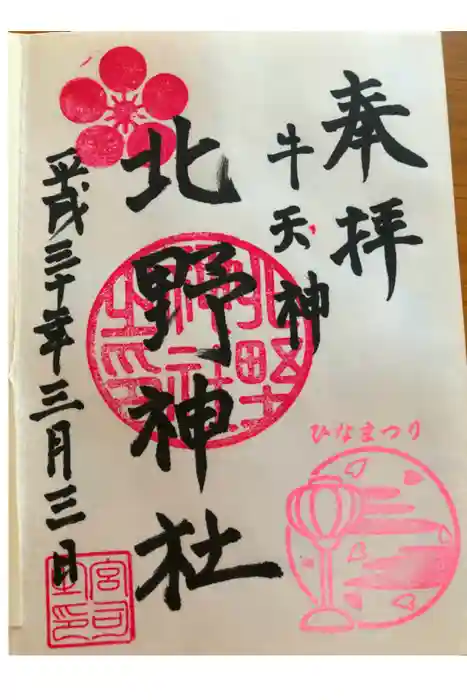 奉拝
牛天神
北野神社
平成三十年三月三日
ひなまつり
北野神社之印
宮司之印